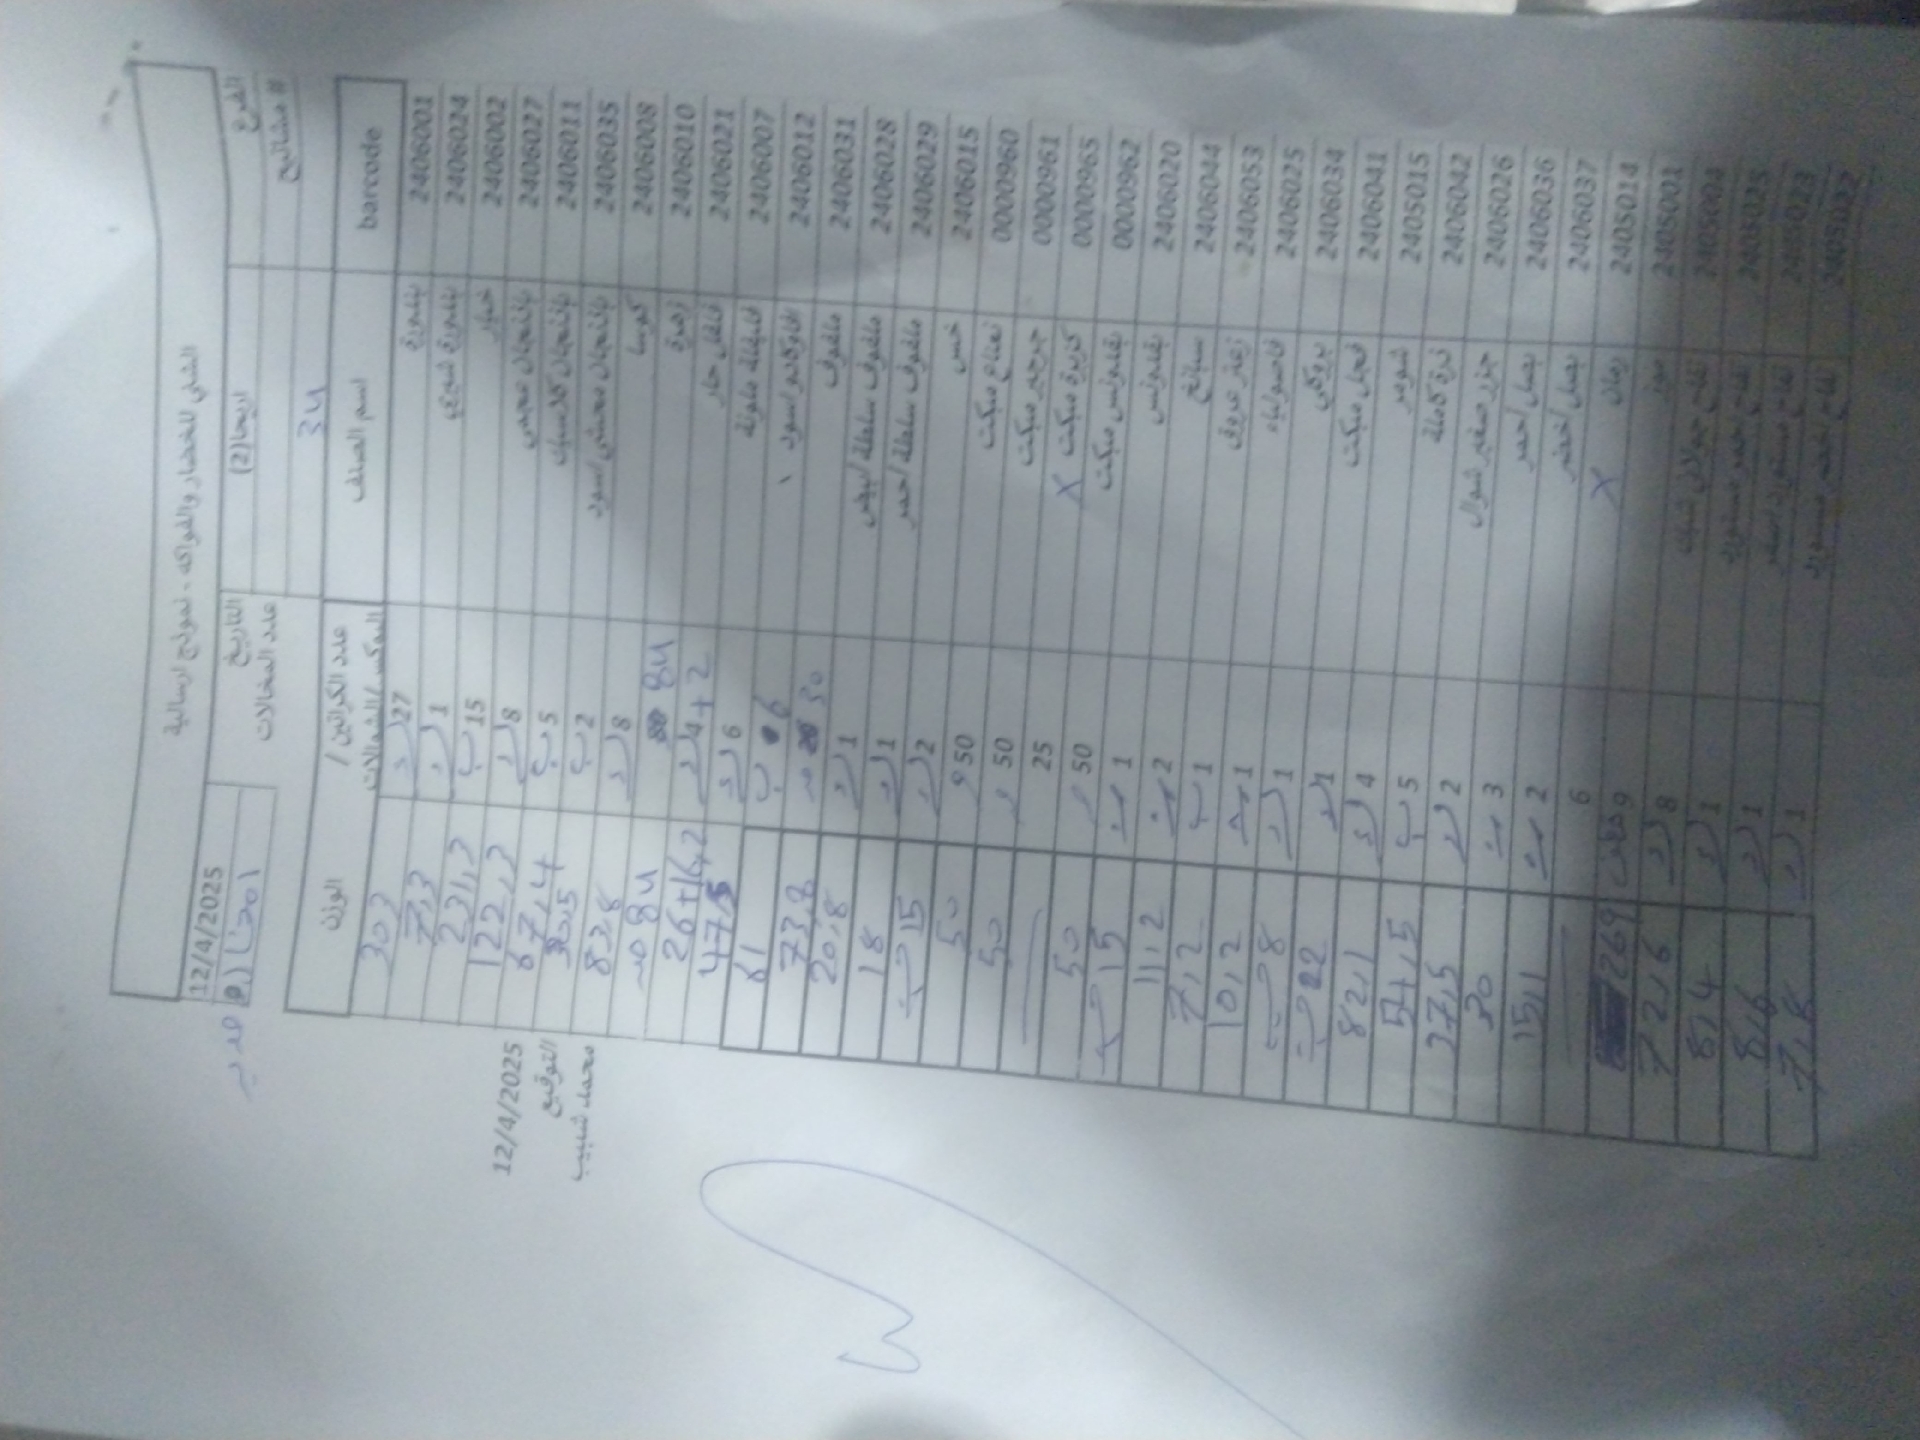 الشني للخضار والفواكه - نموذج ارسالية
الفرع اريحا(2) التاريخ 12/4/2025
# مشاتيح عدد المشالات
34
barcode اسم الصنف عدد الكراتين / البوكس/الشوالات الوزن
2406001 بندورة 27 303
2406024 بندورة شيري 1 7,3
2406002 خيار 15 231,3
2406027 باذنجان عجمي 8 122,3
2406011 باذنجان كلاسيك 5 67,4
2406035 باذنجان محشي اسود 2 30,5
2406008 كوسا 8 83,8
2406010 زهرة 84 84
2406021 فلفل حار 4+2 26+16,2
2406007 فليفلة ملونة 6 47,5
2406012 افوكادو اسود 6 61
2406031 ملفوف 30 73,8
2406028 ملفوف سلطة ابيض 1 20,8
2406029 ملفوف سلطة احمر 1 18
2406015 خس 2 15
0000960 نعناع مبكت 50 50
0000961 جرجير مبكت 50 50
0000965 كزبرة مبكت X 25
0000962 بقدونس مبكت 50 50
2406020 بقدونس 1 15
2406044 سبانخ 2 11,2
2406053 زعتر عروق 1 7,2
2406025 فاصولياء 1 10,2
2406034 بروكلي 1 8
2406041 فجل مبكت 1 22
2405015 شومر 4 82,1
2406042 ذرة كاملة 5 54,5
2406026 جزر صغير شوال 2 27,5
2406036 بصل احمر 3 30
2406037 بصل اخضر 2 15,1
2405014 رمان X 6
2405001 موز 9 269
2405004 تفاح جولان شرك 8 72,6
2405025 تفاح احمر مستورد 1 8,4
2405023 تفاح مستورد اصفر 1 8,6
تفاح اخضر مستورد 1 7,8
12/4/2025
التوقيع
محمد شبيب